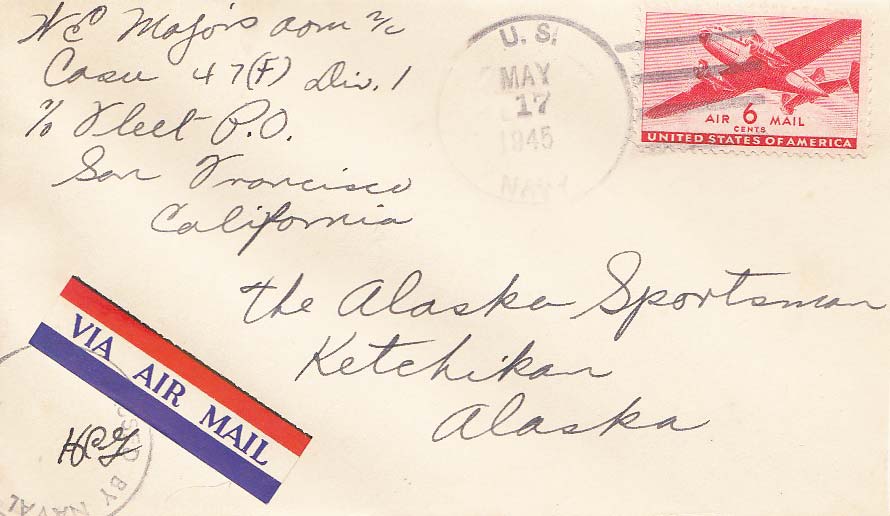 W E Majors aom 2/c
Casu 47(F) Div. 1
c/o Fleet P.O.
San Francisco
California
U. S.
MAY
17
1945
NAVY
AIR 6 MAIL
CENTS
UNITED STATES OF AMERICA
the Alaska Sportsman
Ketchikan
Alaska
VIA AIR MAIL
BY NAVAL